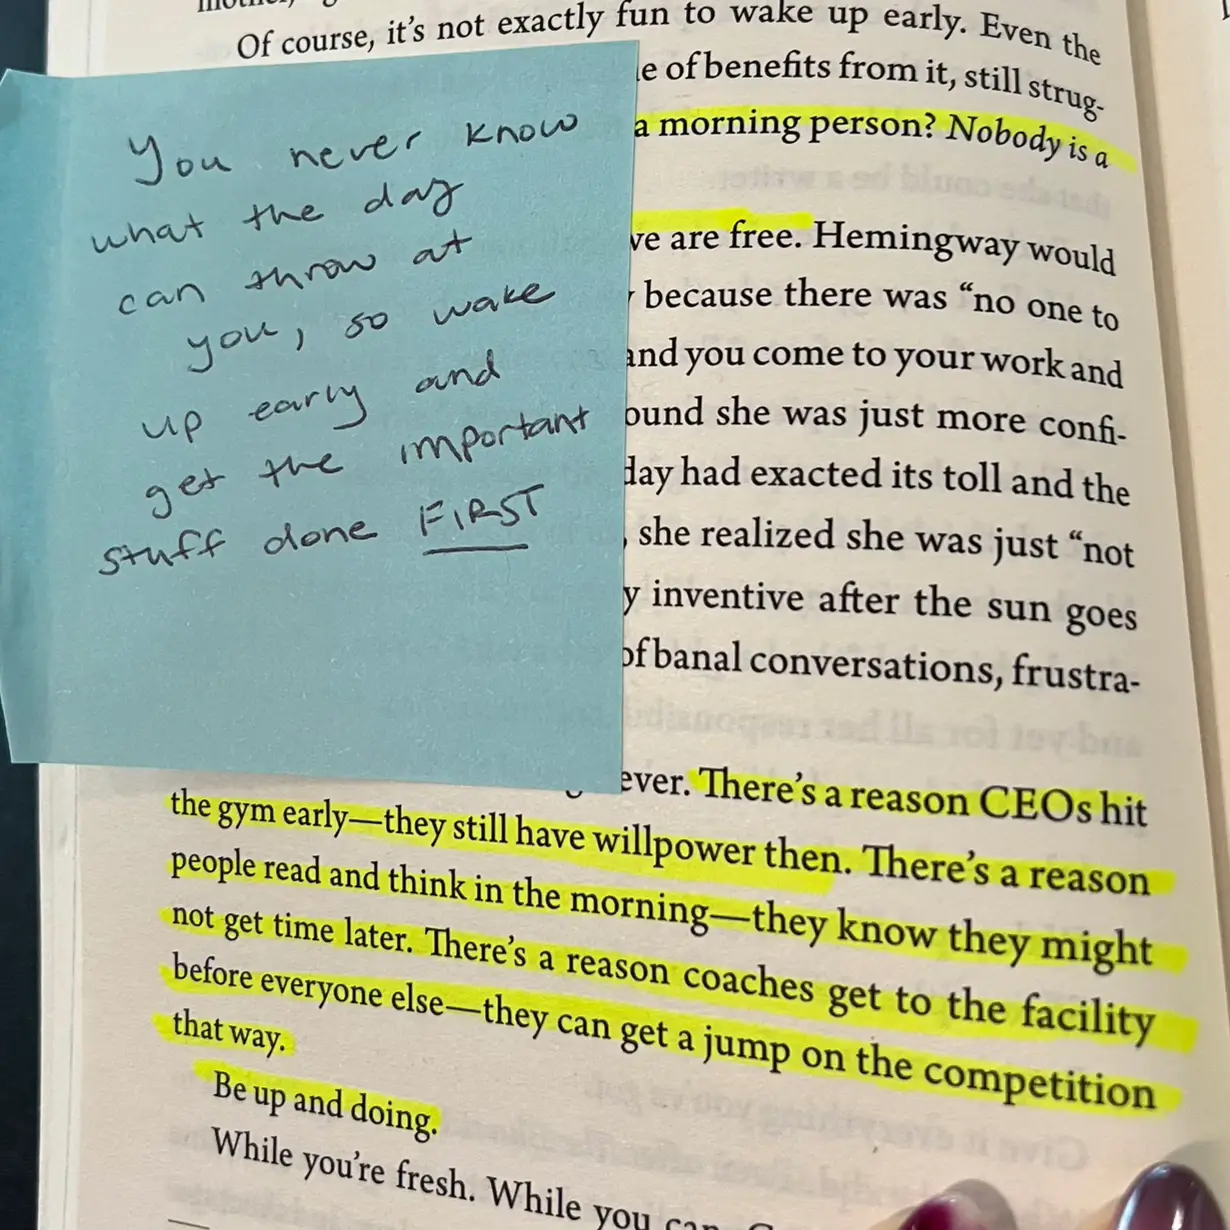 Of course, it's not exactly fun to wake up early. Even the
of benefits from it, still strug-
a morning person? Nobody is a
are free. Hemingway would
because there was “no one to
and you come to your work and
she was just more confi-
day had exacted its toll and the
she realized she was just “not
inventive after the sun goes
of banal conversations, frustra-
There's a reason CEOs hit
the gym early—they still have willpower then. There's a reason
people read and think in the morning—they know they might
not get time later. There's a reason coaches get to the facility
before everyone else—they can get a jump on the competition
that way.
Be up and doing.
While you're fresh. While you
You never know
what the day
can throw at
you, so wake
up early and
get the important
stuff done FIRST